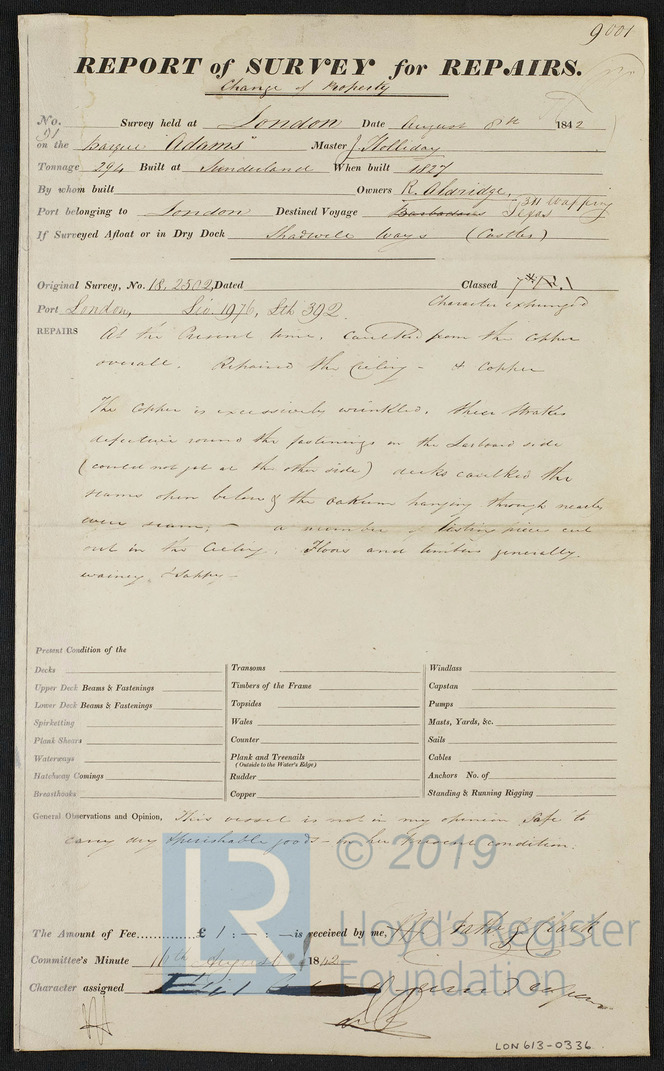 9001
REPORT of SURVEY for REPAIRS.
Change of Property
No. Survey held at London Date August 8th 1842
91
on the Barque "Adams" Master J Holliday
Tonnage 294 Built at Sunderland When built 1827
By whom built Owners R. Aldridge,
311 Wapping
Port belonging to London Destined Voyage Barbadoes Texas
If Surveyed Afloat or in Dry Dock Shadwell Ways (Castles)
Original Survey, No. 18,2502, Dated Classed
Character expunged
Port London, Liv. 1976, Lth 392.
REPAIRS
At the Present time, caulked from the Copper
overall. Repaired the Ceiling - & Copper
The Copper is excessively wrinkled, three strakes
defective round the fastenings on the Larboard side
(could not get at the other side) decks caulked the
seams open below & the oakum hanging through nearly
every seam; - a number of Listing pieces cut
out in the Ceiling. Floors and timbers generally
wainey & sappy -
Present Condition of the
Decks
Upper Deck Beams & Fastenings
Lower Deck Beams & Fastenings
Spirketting
Plank Shears
Waterways
Hatchway Comings
Breasthooks
Transoms
Timbers of the Frame
Topsides
Wales
Counter
Plank and Treenails
(Outside to the Water's Edge)
Rudder
Copper
Windlass
Capstan
Pumps
Masts, Yards, &c.
Sails
Cables
Anchors No. of
Standing & Running Rigging
General Observations and Opinion, This vessel is not in my opinion safe to
carry dry & perishable goods - in her present condition.
© 2019
Lloyd's Register
Foundation
LR
The Amount of Fee..............£ 1 : - : - is received by me, Clark
Committee's Minute 16th August 1842
Character assigned
LON613-0336